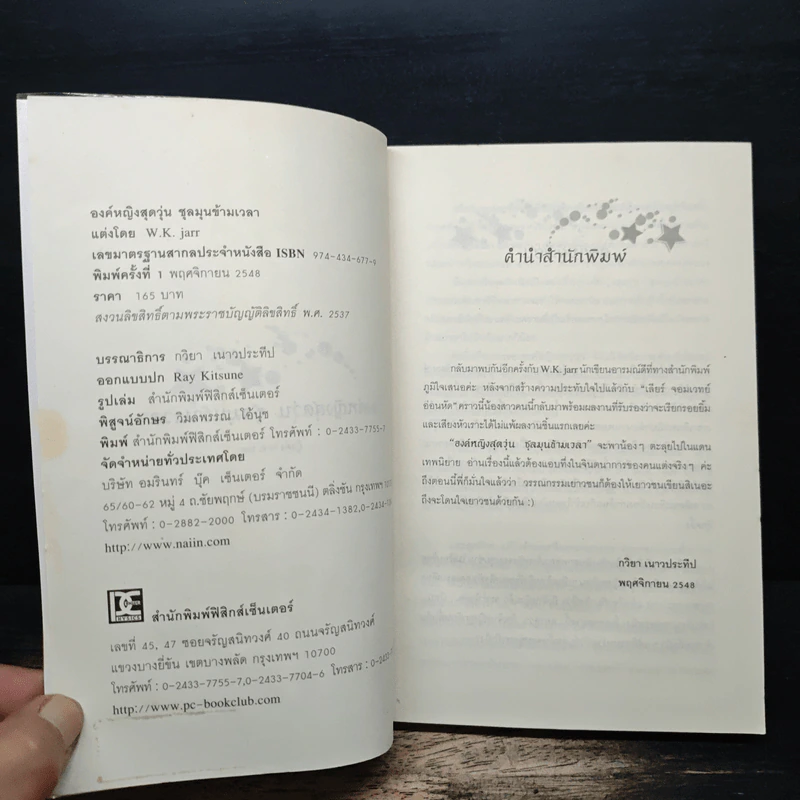 องค์หญิงสุดวุ่น ชุลมุนข้ามเวลา
แต่งโดย W.K. jarr
เลขมาตรฐานสากลประจำหนังสือ ISBN 974-434-677-9
พิมพ์ครั้งที่ 1 พฤศจิกายน 2548
ราคา 165 บาท
สงวนลิขสิทธิ์ตามพระราชบัญญัติลิขสิทธิ์ พ.ศ. 2537
บรรณาธิการ กวิยา เนาวประทีป
ออกแบบปก Ray Kitsune
รูปเล่ม สำนักพิมพ์ฟิสิกส์เซ็นเตอร์
พิสูจน์อักษร วิมลพรรณ ไอ้นุช
พิมพ์ สำนักพิมพ์ฟิสิกส์เซ็นเตอร์ โทรศัพท์ : 0-2433-7755-7
จัดจำหน่ายทั่วประเทศโดย
บริษัท อมรินทร์ บุ๊ค เซ็นเตอร์ จำกัด
65/60-62 หมู่ 4 ถ.ชัยพฤกษ์ (บรมราชชนนี) ตลิ่งชัน กรุงเทพฯ
โทรศัพท์ : 0-2882-2000 โทรสาร : 0-2434-1382,0-2434-
http://www.naiin.com
สำนักพิมพ์ฟิสิกส์เซ็นเตอร์
เลขที่ 45, 47 ซอยจรัญสนิทวงศ์ 40 ถนนจรัญสนิทวงศ์
แขวงบางยี่ขัน เขตบางพลัด กรุงเทพฯ 10700
โทรศัพท์ : 0-2433-7755-7,0-2433-7704-6 โทรสาร : 0-243
http://www.pc-bookclub.com
คำนำสำนักพิมพ์
กลับมาพบกันอีกครั้งกับ W.K. jarr นักเขียนอารมณ์ดีที่ทางสำนักพิมพ์
ภูมิใจเสนอค่ะ หลังจากสร้างความประทับใจไปแล้วกับ "เลียร์ จอมเวทย์
อ่อนหัด" คราวนี้น้องสาวคนนี้กลับมาพร้อมผลงานที่รับรองว่าจะเรียกรอยยิ้ม
และเสียงหัวเราะได้ไม่แพ้ผลงานชิ้นแรกเลยค่ะ
"องค์หญิงสุดวุ่น ชุลมุนข้ามเวลา" จะพาน้องๆ ตะลุยไปในแดน
เทพนิยาย อ่านเรื่องนี้แล้วต้องแอบทึ่งในจินตนาการของคนแต่งจริงๆ ค่ะ
ถึงตอนนี้พี่ก็มั่นใจแล้วว่า วรรณกรรมเยาวชนก็ต้องให้เยาวชนเขียนสิเนอะ
ถึงจะโดนใจเยาวชนด้วยกัน :)
กวิยา เนาวประทีป
พฤศจิกายน 2548